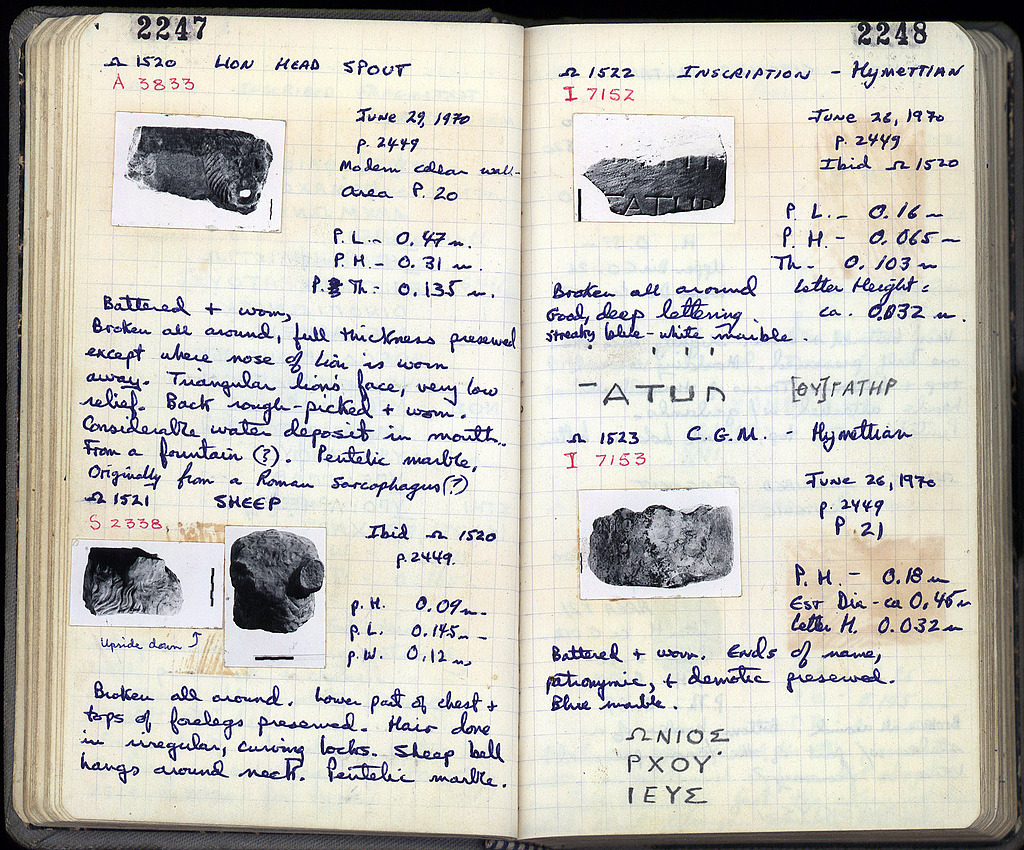 2247
Ω 1520 LION HEAD SPOUT
A 3833
June 29, 1970
p. 2449
Modern cellar wall-
Area P. 20
P. L. - 0.47 m.
P. H. - 0.31 m.
P. Th. - 0.135 m.
Battered + worn,
Broken all around, full thickness preserved
except where nose of lion is worn
away. Triangular lion's face, very low
relief. Back rough-picked + worn.
Considerable water deposit in mouth.
From a fountain (?). Pentelic marble,
Originally from a Roman Sarcophagus (?)
Ω 1521 SHEEP
S 2338,
Ibid Ω 1520
p. 2449.
p. H. 0.09 m.
p. L. 0.145 m.
p. W. 0.12 m.
Upside down ↑
Broken all around. Lower part of chest +
tops of forelegs preserved. Hair done
in irregular, curving locks. Sheep bell
hangs around neck. Pentelic marble.
2248
Ω 1522 INSCRIPTION - Hymettian
I 7152
June 26, 1970
p. 2449
Ibid Ω 1520
P. L. - 0.16 m
P. H. - 0.065 m
Th. - 0.103 m
Broken all around Letter Height =
Good, deep lettering. ca. 0.032 m.
Streaky blue-white marble.
[ΘΥ]ΓΑΤΗΡ
Ω 1523 C.G.M. - Hymettian
I 7153
June 26, 1970
p. 2449
P. 21
P. H. - 0.18 m
Est Dia - ca 0.45 m
Letter H. 0.032 m
Battered + worn. Ends of name,
patronymic, + demotic preserved.
Blue marble.
ΩΝΙΟΣ
ΡΧΟΥ
ΙΕΥΣ